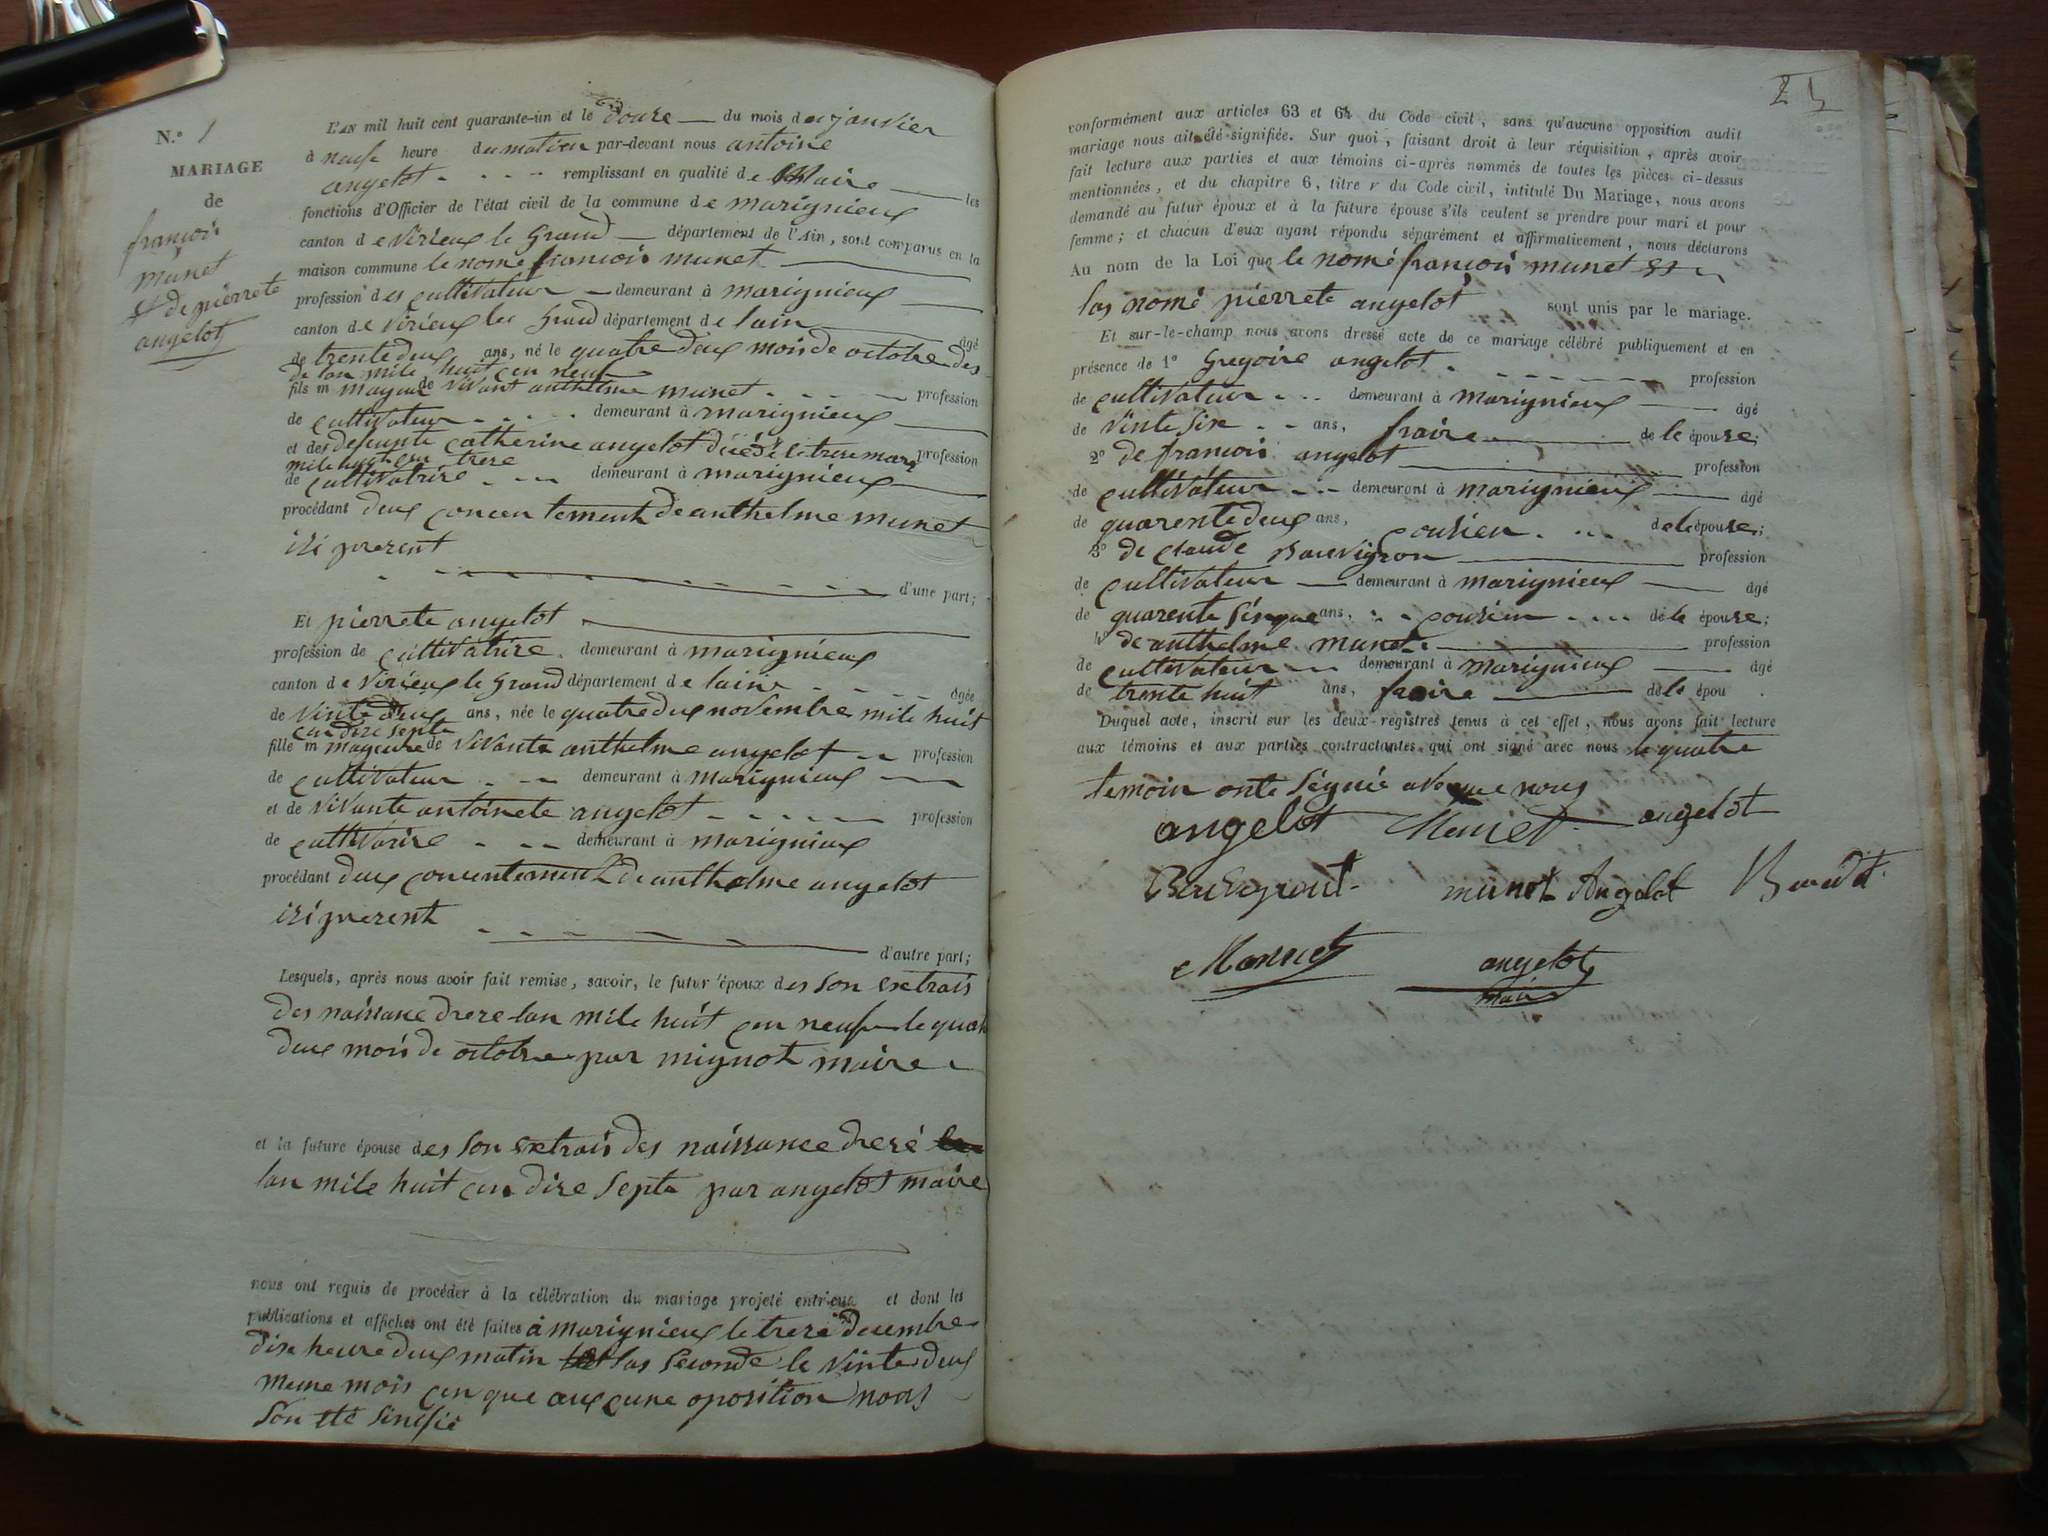 N.º 1
MARIAGE
de
françois
munet
et de pierrete
angelot
L'AN mil huit cent quarante-un et le douze du mois de janvier
à neufe heure du matien par-devant nous antoine
angelot remplissant en qualité de Maire les
fonctions d'Officier de l'état civil de la commune de marignieux
canton de Virieux le Grand département de l'Ain, sont comparus en la
maison commune le nomé françois munet
profession des cultivateur demeurant à marignieux
canton de Virieux les Grand département de lain âgé
de trente deux ans, né le quatre deux mois de octobre des
de lan mile huit cen neufe
fils m mayeur de vivant anthelme munet profession
de cultivateur demeurant à marignieux
et des defeunte catherine angelot décédé le treze mars profession
mile huit cen treze
de cultivatrise demeurant à marignieux
procédant deux concentement de anthelme munet
isi prezent
d'une part;
Et pierrete angelot
profession de cultivatrise demeurant à marignieux
canton de Virieux le Grand département de laine âgée
de vinte deux ans, née le quatre deux novembre mile huit
cen dize septe
fille m mayeure de vivante anthelme angelot profession
de cultivateur demeurant à marignieux
et de vivante antoinete angelot profession
de cultivarise demeurant à marignieux
procédant deux concentement de anthelme angelot
isi prezent
d'autre part;
Lesquels, après nous avoir fait remise, savoir, le futur époux des son extrais
des naissance dreze lan mile huit cen neufe le quat
deux mois de octobre par mignot maire
et la future épouse des son extrais des naissance dresé
lan mile huit cen dize septe par angelot maire
nous ont requis de procéder à la célébration du mariage projeté entr'eux et dont les
publications et affiches ont été faites à marignieux le treze décembre
dize heure deux matin las seconde le vinte deux
meme mois cen que auxcune oposition nous
son été sinifié
25
conformément aux articles 63 et 64 du Code civil, sans qu'aucune opposition audit
mariage nous ait été signifiée. Sur quoi, faisant droit à leur réquisition, après avoir
fait lecture aux parties et aux témoins ci-après nommés de toutes les pièces ci-dessus
mentionnées, et du chapitre 6, titre v du Code civil, intitulé Du Mariage, nous avons
demandé au futur époux et à la future épouse s'ils veulent se prendre pour mari et pour
femme; et chacun d'eux ayant répondu séparément et affirmativement, nous déclarons
Au nom de la Loi que le nomé françois munet et
las nomé pierrete angelot sont unis par le mariage.
Et sur-le-champ nous avons dressé acte de ce mariage célébré publiquement et en
présence de 1º Gregoire angelot profession
de cultivateur demeurant à marignieux âgé
de vinte sixe ans, fraire de le épouse;
2º de françois angelot profession
de cultivateur demeurant à marignieux âgé
de quarente deux ans, cousien de le épouse;
3º de claude Bauvignon profession
de cultivateur demeurant à marignieux âgé
de quarente sinque ans, cousien de le épouse;
4º de anthelme munet profession
de cultivateur demeurant à marignieux âgé
de trente huit ans, fraire de le épou
Duquel acte, inscrit sur les deux registres tenus à cet effet, nous avons fait lecture
aux témoins et aux parties contractantes qui ont signé avec nous le quatre
temoin onteségnié aveque nous
angelot Munet angelot
munet Angelot
angelot
maire